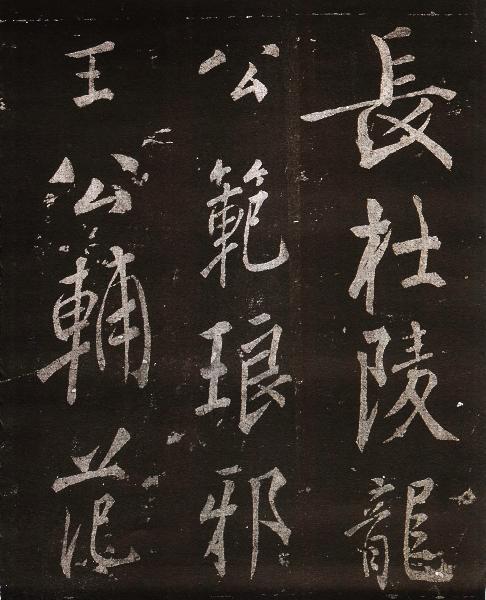 長杜陵龍
公範琅邪
王公輔范